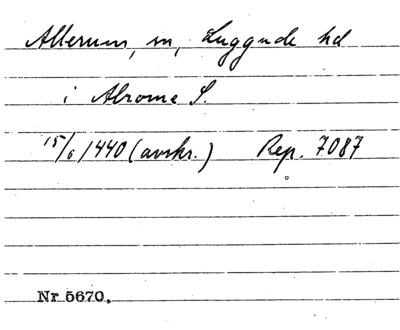 Allerum, sn, Luggude hd
i Alrome S.
15/6 1440 (avskr.) Rep. 7087
Nr 5670.